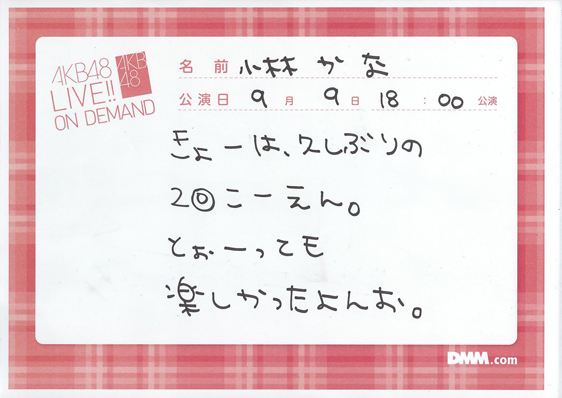 AKB48
LIVE!!
ON DEMAND
AKB
48
名前 小林かな
公演日 9月 9日 18:00 公演
きょーは、久しぶりの
2回こーえん。
とぉーっても
楽しかったよんお。
DMM.com